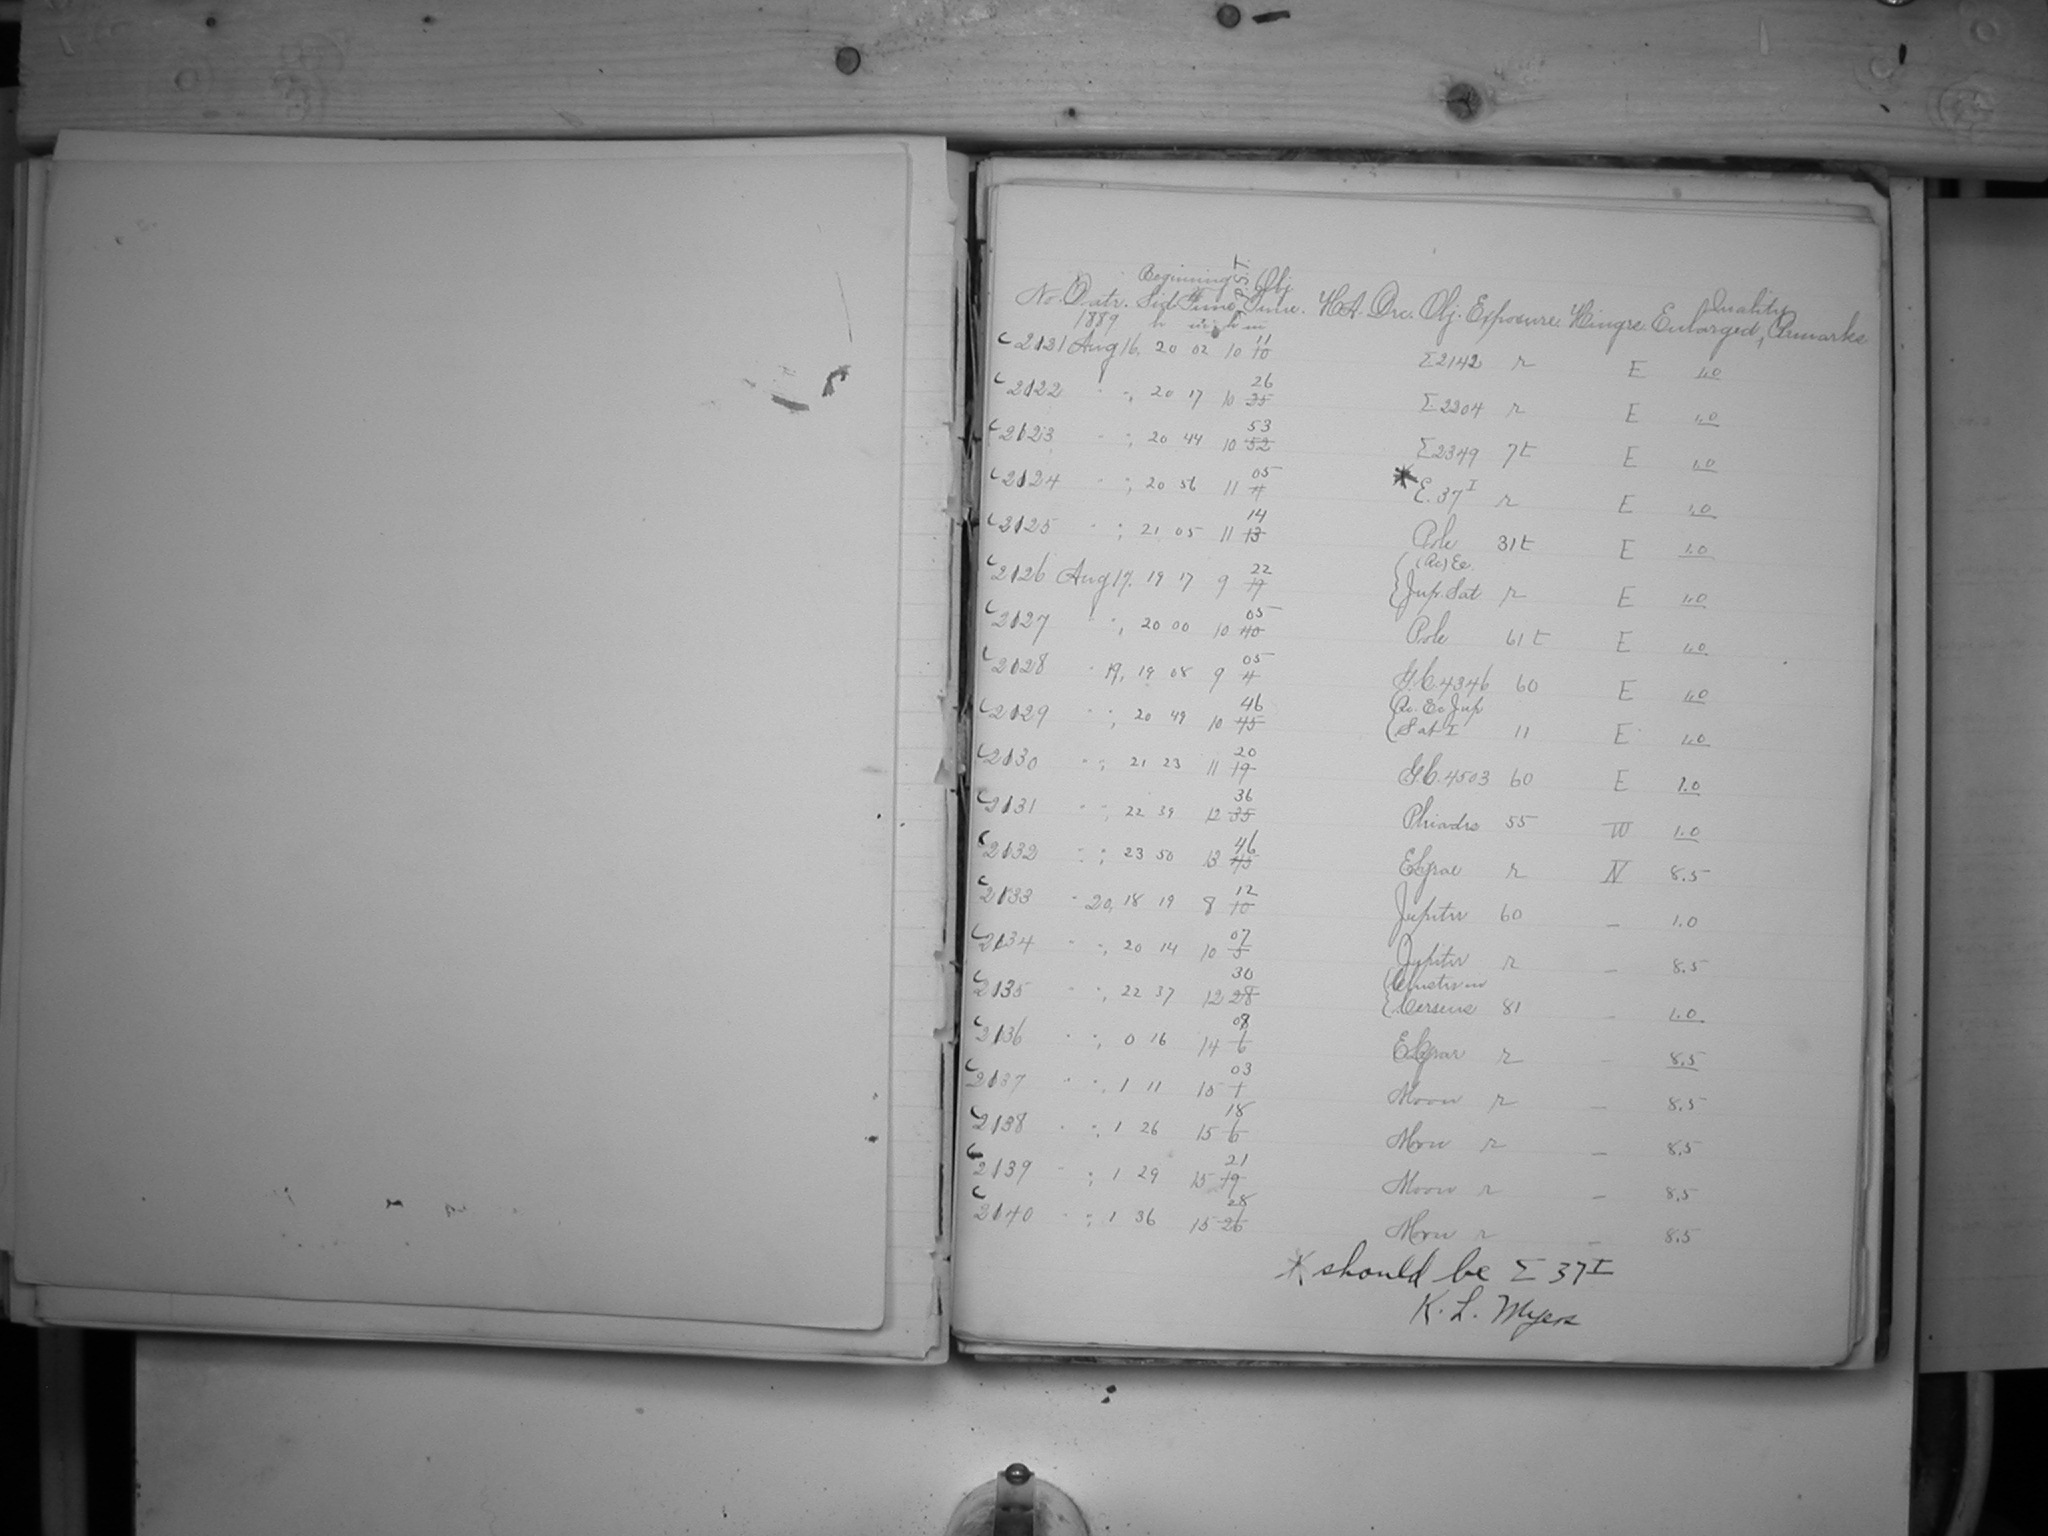 Beginning P.S.T. Obj. Quality
No. Date. Sid. Time, Time. H.A. Dec. Obj. Exposure. Hinge Enlarged, Remarks
1889 h m h m
11
2121 Aug 16, 20 02 10 10 Σ2142 r E 1.0
26
2122 " ", 20 17 10 25 Σ2204 r E 1.0
53
2123 " ", 20 44 10 52 Σ2349 7t E 1.0
05
2124 " ", 20 56 11 4 * E. 37 I r E 1.0
14
2125 " ", 21 05 11 13 Pole 31t E 1.0
22 (Re) Ec.
2126 Aug 17. 19 17 9 19 Jup. Sat. r E 1.0
05
2127 " ", 20 00 10 40 Pole 61t E 1.0
05
2128 " 19, 19 08 9 4 G.C. 4346 60 E 1.0
46 Re. Ec. Jup
2129 " ", 20 49 10 45 Sat I 11 E 1.0
20
2130 " ", 21 23 11 19 G.C. 4503 60 E 1.0
36
2131 " ", 22 39 12 35 55 W 1.0
46
2132 " ", 23 50 13 45 ε Lyrae r N 8.5
12
2133 " 20, 18 19 8 10 Jupiter 60 – 1.0
07
2134 " ", 20 14 10 5 Jupiter r – 8.5
30 Cluster in
2135 " ", 22 37 12 28 Perseus 81 – 1.0
08
2136 " ", 0 16 14 6 ε Lyrae r – 8.5
03
2137 " ", 1 11 15 1 Moon r – 8.5
18
2138 " ", 1 26 15 6 Moon r – 8.5
21
2139 " ", 1 29 15 19 Moon r – 8.5
28
2140 " ", 1 36 15 26 Moon r – 8.5
* should be Σ 37 I
K. L. Myers